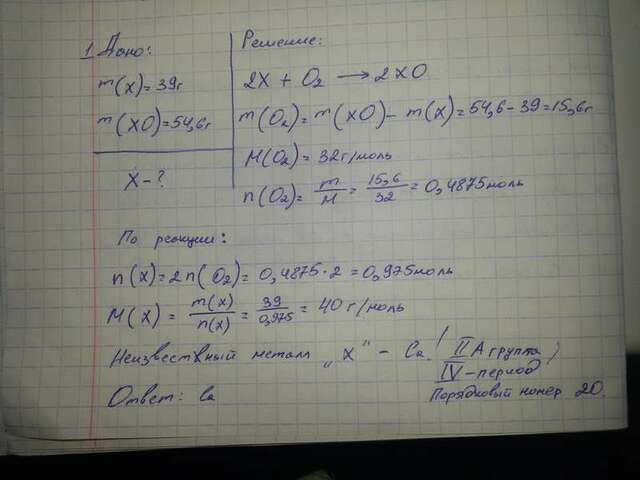 1. Дано:
m(x)=39г
m(XO)=54,6г
X-?
Решение:
2X + O₂ → 2XO
m(O₂)= m(XO)- m(x)=54,6-39=15,6г
M(O₂)= 32г/моль
n(O₂)= m/M = 15,6/32 = 0,4875моль
По реакции:
n(x)=2n(O₂)= 0,4875·2=0,975моль
M(X) = m(x)/n(x) = 39/0,975 = 40г/моль
Неизвествный металл „X" - Ca (IIA группа)
IV-период
Порядковый номер 20.
Ответ: Ca